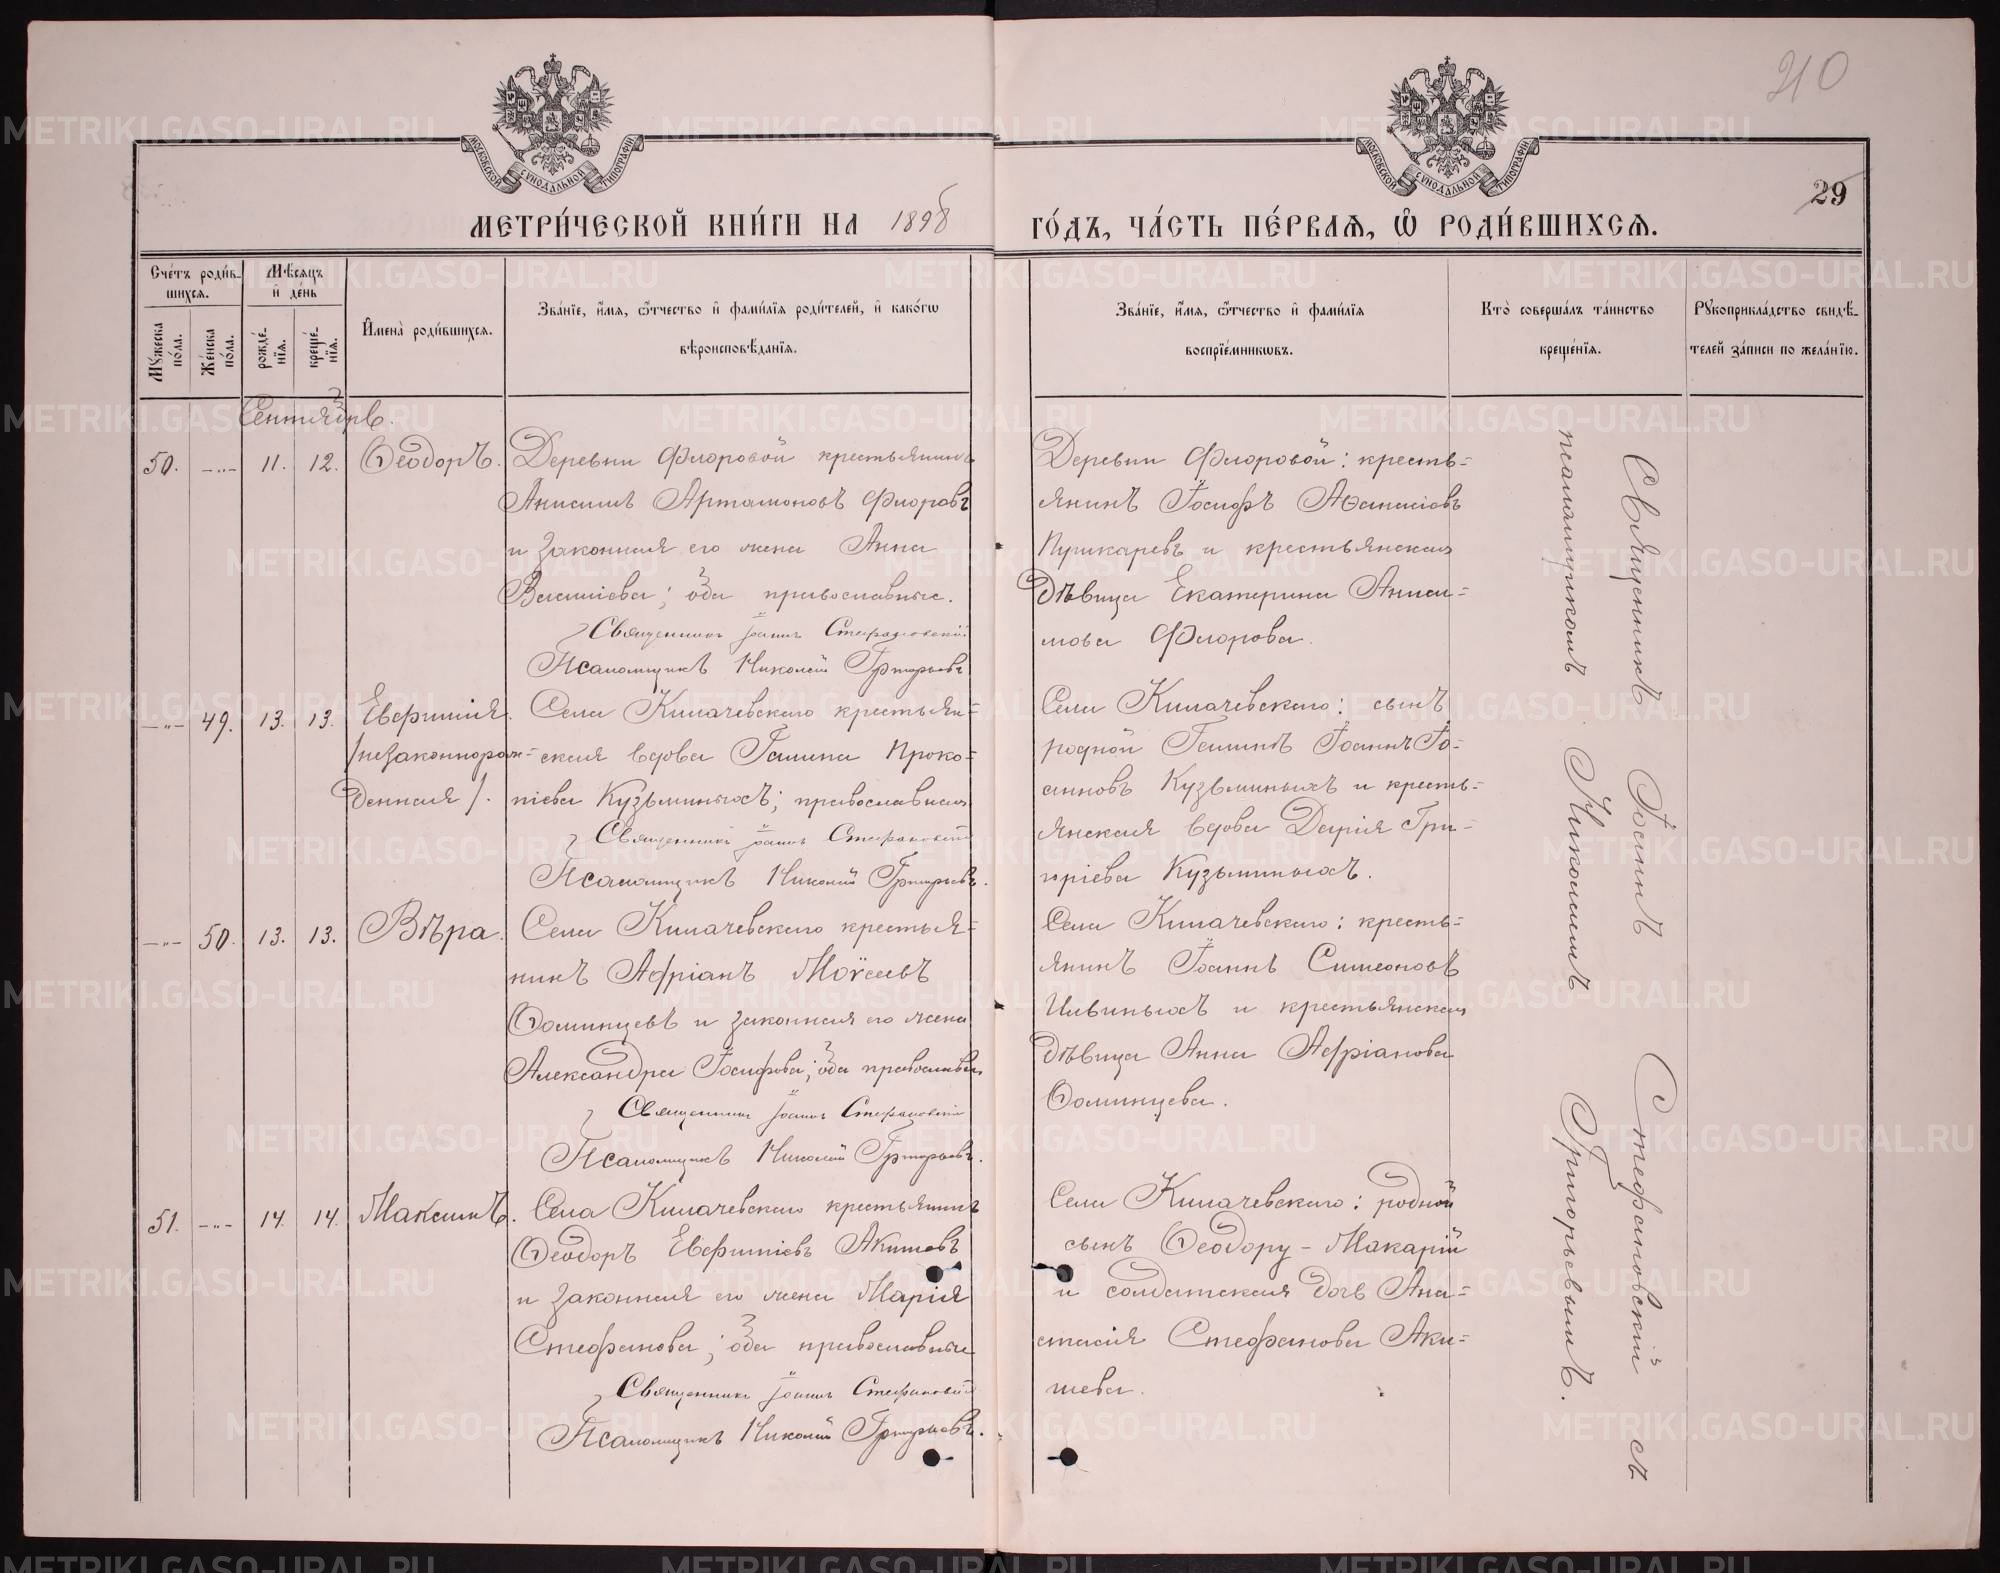 210
МОСКОВСКОЙ СѴНОДАЛЬНОЙ ТИПОГРАФІИ
МОСКОВСКОЙ СѴНОДАЛЬНОЙ ТИПОГРАФІИ
29
МЕТРИ́ЧЕСКОЙ КНИ́ГИ НА 1898 ГО́ДЪ, ЧА́СТЬ ПЕ́РВАѦ, Ѡ҆ РОДИ́ВШИХСѦ.
Сче́тъ роди́в-
шихсѧ.
Мꙋ́жеска по́ла.
Же́нска по́ла.
Мѣ́сѧцъ
и҆ де́нь
рожде́-
нїѧ.
креще́-
нїѧ.
И҆мена̀ роди́вшихсѧ.
Зва́нїе, и҆́мѧ, ѻ҆́тчество и҆ фами́лїѧ роди́телей, и҆ како́гѡ
вѣроисповѣ́данїѧ.
Зва́нїе, и҆́мѧ, ѻ҆́тчество и҆ фами́лїѧ
воспрїе́мникѡвъ.
Кто̀ соверша́лъ та́инство
креще́нїѧ.
Рꙋкоприкла́дство свидѣ́-
телей за́писи по жела́нїю.
Сентябрь.
50. —"— 11. 12. Ѳеодоръ.
Деревни Флоровой крестьянинъ
Анисимъ Артамоновъ Флоровъ
и законная его жена Анна
Василіева; оба православные.
Священникъ Іоаннъ Стефановскій
Псаломщикъ Николай Григорьевъ
Деревни Флоровой: кресть=
янинъ Іосифъ Аѳанасіевъ
Пушкаревъ и крестьянская
дѣвица Екатерина Аниси=
мова Флорова.
—"— 49. 13. 13. Евфимія.
/незаконнорож=
денная/.
Села Килачевскаго крестьян=
ская вдова Галина Проко=
піева Кузьминыхъ; православная
Священникъ Іоаннъ Стефановскій
Псаломщикъ Николай Григорьевъ.
Села Килачевскаго: сынъ
родной Галины Іоаннъ Іо=
анновъ Кузьминыхъ и кресть=
янская вдова Дарія Гри=
горіева Кузьминыхъ.
—"— 50. 13. 13. Вѣра.
Села Килачевскаго крестья=
нинъ Адріанъ Моѵсеевъ
Ѳоминцевъ и законная его жена
Александра Іосифова; оба православн.
Священникъ Іоаннъ Стефановскій
Псаломщикъ Николай Григорьевъ.
Села Килачевскаго: кресть=
янинъ Іоаннъ Симеоновъ
Ильиныхъ и крестьянская
дѣвица Анна Адріанова
Ѳоминцева.
51. —"— 14. 14. Максимъ.
Села Килачевскаго крестьянинъ
Ѳеодоръ Евфиміевъ Акишевъ
и законная его жена Марія
Стефанова; оба православные
Священникъ Іоаннъ Стефановскій
Псаломщикъ Николай Григорьевъ.
Села Килачевскаго: родной
сынъ Ѳеодору - Макарій
и солдатская дочь Ана=
стасія Стефанова Аки=
шева.
Священникъ Іоаннъ Стефановскій съ
псаломщикомъ Николаемъ Григорьевымъ.
METRIKI.GASO-URAL.RU